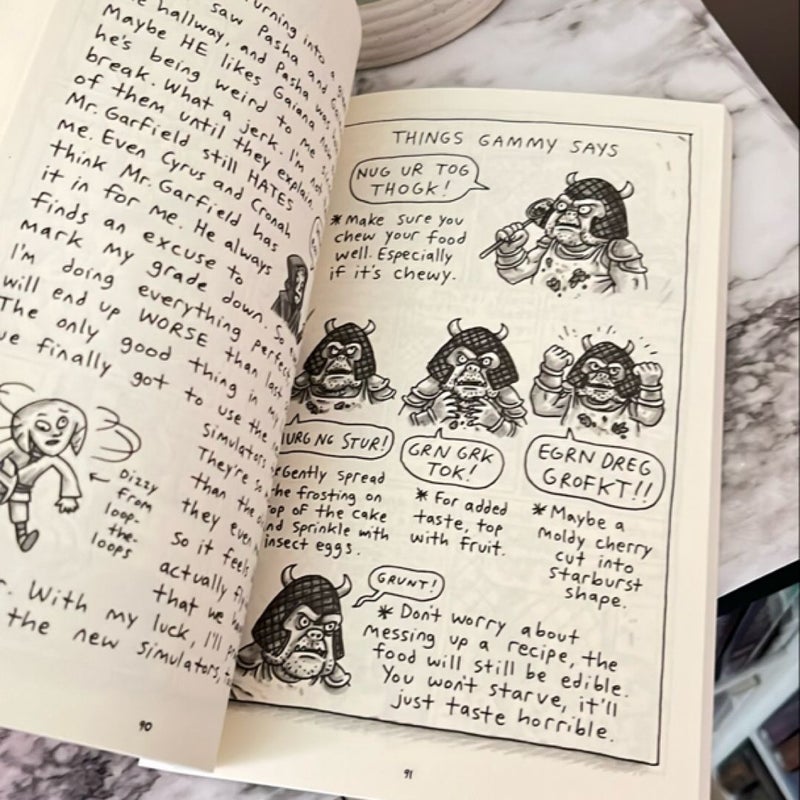 turning into a
hallway, and Pasha
saw Pasha and
Maybe HE likes Gaiana
he's being weird to me
break. What a jerk. I'm not
of them until they explain.
Mr. Garfield still HATES
me. Even Cyrus and Cronah
think Mr. Garfield has
it in for me. He always
finds an excuse to
mark my grade down. So
I'm doing everything
will end up WORSE than last
The only good thing in my
finally got to use the
simulators
They're so
than the
they even
So it feels
actually
that we
With my luck, I'll
the new simulators,
Dizzy
from
loop-
the-
loops
90
THINGS GAMMY SAYS
NUG UR TOG
THOGK!
*Make sure you
chew your food
well. Especially
if it's chewy.
URG NG STUR!
Gently spread
the frosting on
top of the cake
and sprinkle with
insect eggs.
GRN GRK
TOK!
*For added
taste, top
with fruit.
EGRN DREG
GROFKT!!
*Maybe a
moldy cherry
cut into
starburst
shape.
GRUNT!
*Don't worry about
messing up a recipe, the
food will still be edible.
You won't starve, it'll
just taste horrible.
91